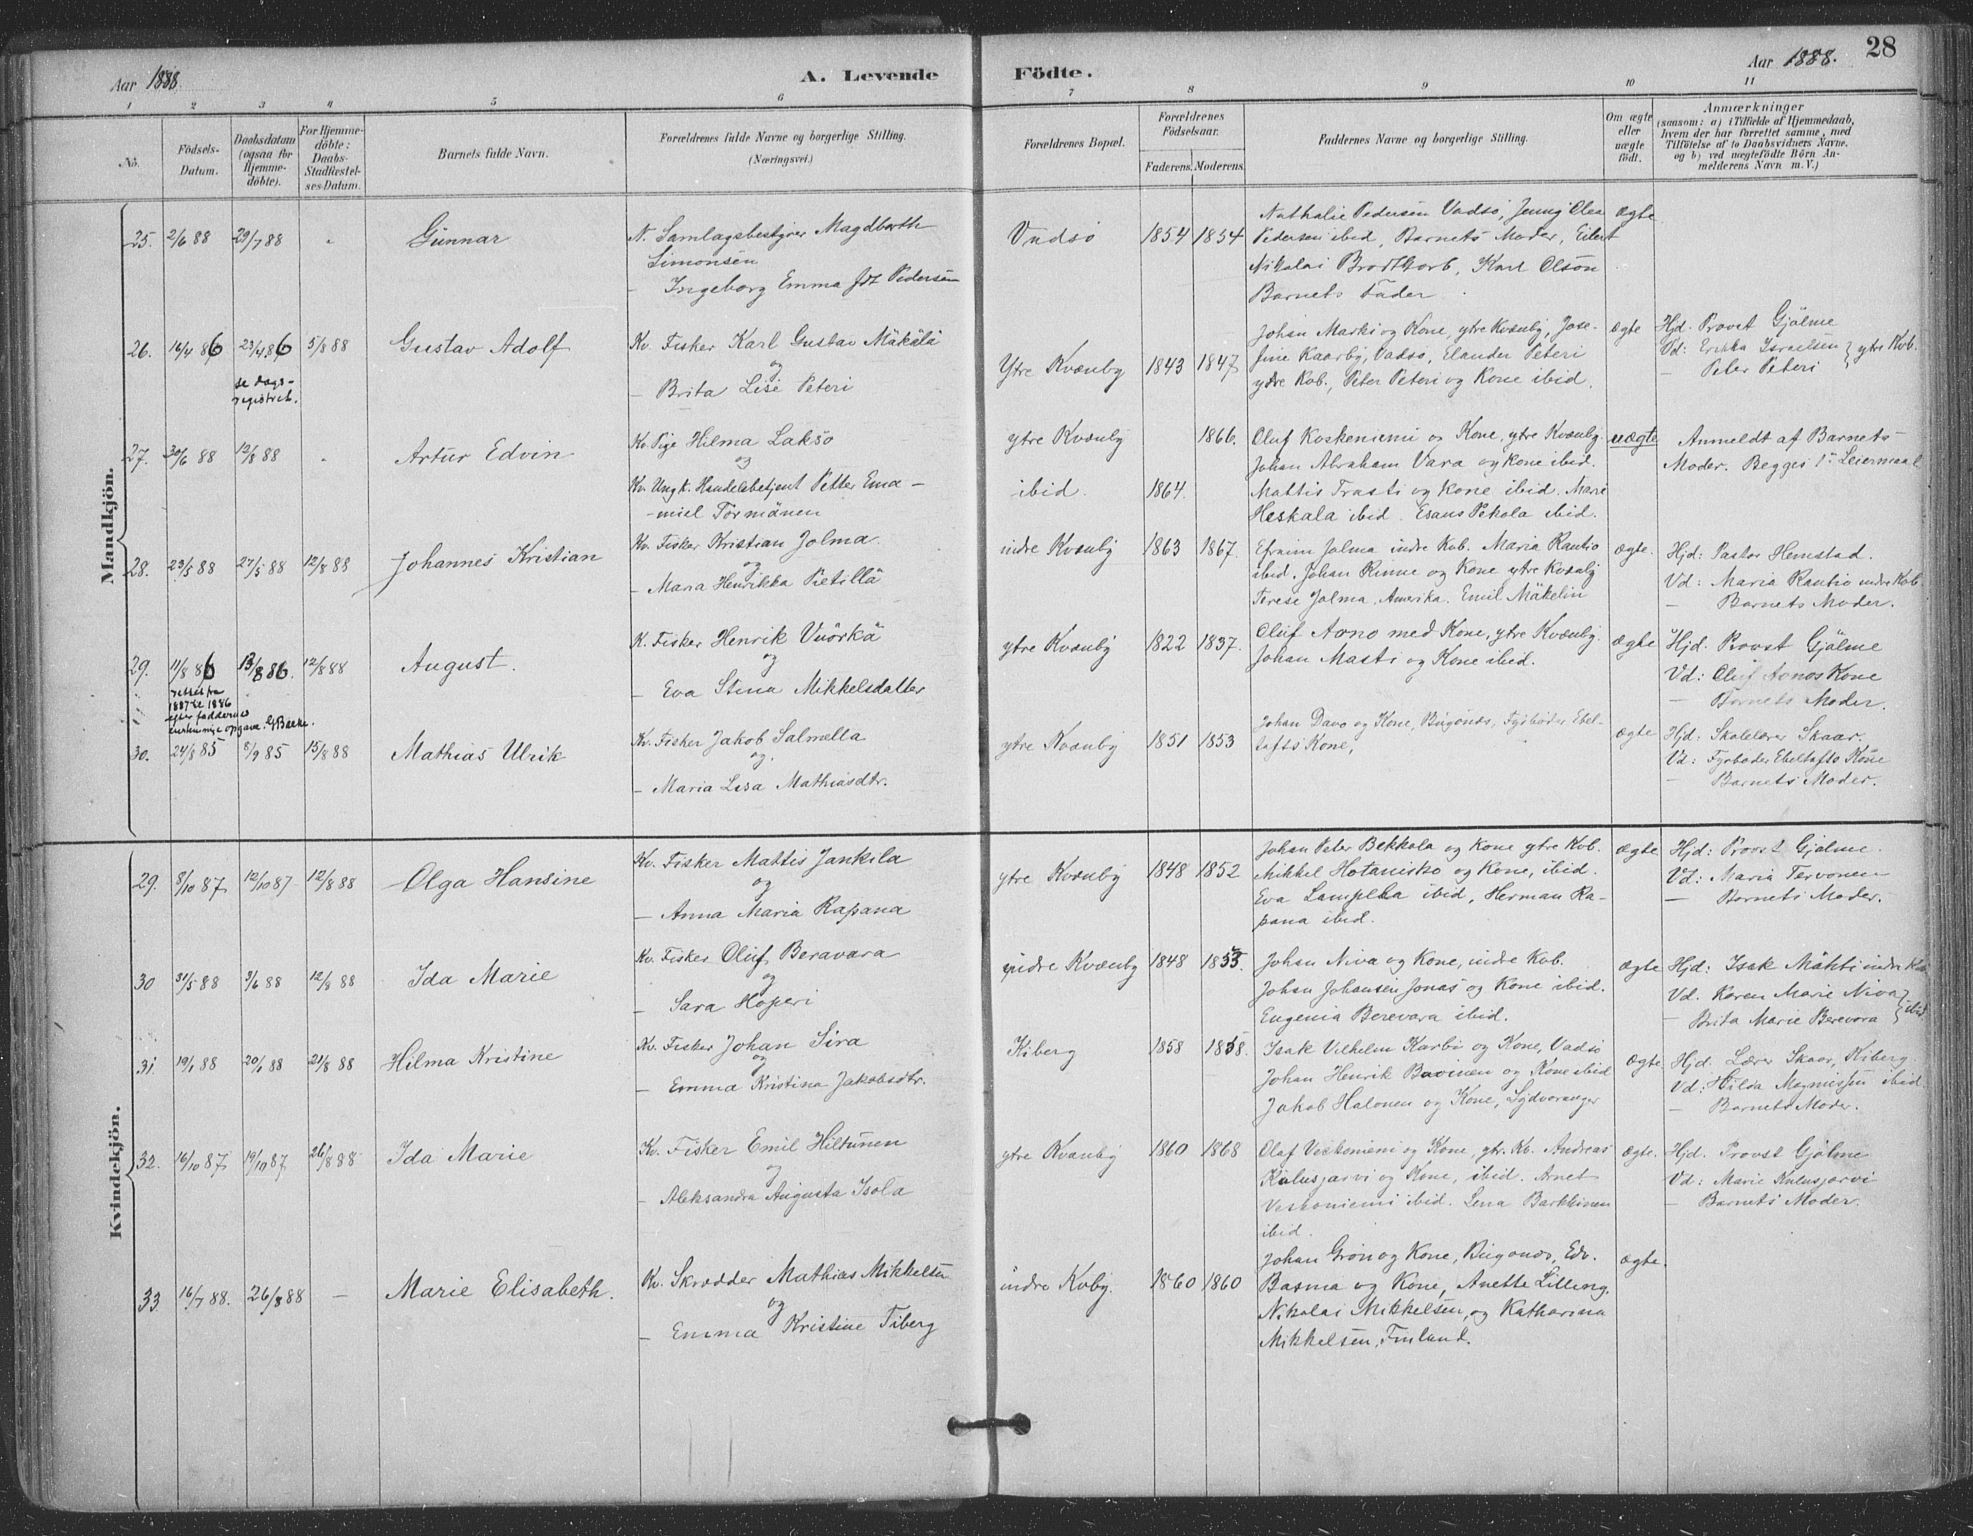 Aar 1888. A. Levende Födte. Aar 1888. 28
1 2 3 4 5 6 7 8 9 10 11
No. Födsels-Datum. Daabsdatum (ogsaa for Hjemmedöbte). For Hjemmedöbte: Daabs-Stadfæstelses-Datum. Barnets fulde Navn. Forældrenes fulde Navne og borgerlige Stilling. (Næringsvei.) Forældrenes Bopæl. Forældrenes Födselsaar. Faderens. Moderens. Faddernes Navne og borgerlige Stilling. Om ægte eller uægte födt. Anmærkninger (saasom: a) i Tilfælde af Hjemmedaab, hvem der har forrettet samme, med Tilföielse af to Daabsvidners Navne, og b) ved uægtefödte Börn Anmelderens Navn m. V.)
Mandkjön.
25. 2/6 88 29/7 88 - Gunnar N. Samlagsbestyrer Magdborth Vadsö 1854 1854 Nathalie Pedersen Vadsö, Jenny Olea ægte
Simonsen Pedersen ibid, Barnets Moder, Eilert
- Ingeborg Emma fdt Pedersen Nikolai Brodtkorb, Karl Olson
Barnets Fader.
26. 14/4 86 23/4 86 5/8 88 Gustav Adolf Kv. Fisker Karl Gustav Mäkälä Ytre Kvænby 1843 1847 Johan Marki og Kone, ytre Kvænby, Jose- ægte Hjd. Provst Gjölme
se dags- og fine Kaarby, Vadsö, Elander Peteri Vd: Erikka Israelsen } ytre Kvb.
registret. - Brita Lise Peteri ydre Kvb., Peter Peteri og Kone ibid. - Peter Peteri
27. 30/6 88 12/8 88 - Artur Edvin Kv. Pige Hilma Lakso ytre Kvænby 1866. Oluf Koskeniemi og Kone, ytre Kvænby. uægte Anmeldt af Barnets
og Johan Abraham Vara og Kone ibid. Moder. Begges 1ste Leiermaal
Kv. Ungk. Handelsbetjent Petter Ema- ibid. 1864. Mattis Trasti og Kone ibid. Marie
-nuel Törmänen Heskala ibid. Esaus Pekola ibid.
28. 23/5 88 27/5 88 12/8 88 Johannes Kristian Kv. Fisker Kristian Jolma. indre Kvænby 1863 1867. Efraim Jolma indre Kvb. Maria Rautio ægte. Hjd: Pastor Hemstad.
og ibid. Johan Rinne og Kone ytre Kvænby Vd: Maria Rautio indre Kvb.
- Maria Henrikka Pietillä Terese Jolma, Amerika. Emil Mäkelin - Barnets Moder.
29. 11/8 86 13/8 86. 12/8 88 August. K. Fisker Henrik Vuörkä ytre Kvænby 1822 1837. Oluf Aono med Kone, ytre Kvænby. ægte Hjd. Provst Gjölme
rettet fra og Johan Masti og Kone ibid. Vd: Oluf Aonos Kone
1887 til 1886 - Eva Stina Mikkelsdatter - Barnets Moder.
efter faddernes
opgave. G. Balke.
30. 24/8 85 8/9 85 15/8 88 Mathias Ulrik Kv. Fisker Jakob Salmella ytre Kvænby 1851 1853 Johan Davo og Kone, Bugönæs, Fyrböder Ebel- ægte Hjd: Skolelærer Skaar.
og. tofts Kone, Vd: Fyrböder Ebeltofts Kone
- Maria Lisa Mathiasdtr. - Barnets Moder.
Kvindekjön.
29. 8/10 87 12/10 87 12/8 88 Olga Hansine Kv. Fisker Mattis Jankila ytre Kvænby 1848 1852 Johan Peter Bekkala og Kone ytre Kvb. ægte Hjd: Provst Gjölme.
og Mikkel Hotanisko og Kone, ibid. Vd: Maria Tervonen
- Anna Maria Rapana Eva Lampela ibid, Herman Ra- - Barnets Moder.
pana ibid.
30 31/5 88 3/6 88 12/8 88 Ida Marie Kv. Fisker Oluf Beravara indre Kvænby 1848 1855. Johan Niva og Kone, indre Kvb. ægte Hjd: Isak Mäkti indre Kvb
og Johan Johansen Jonas og Kone ibid. Vd. Karen Marie Niva } ibid
- Sara Hoperi Eugenia Berevara ibid. - Brita Marie Berevara
31. 19/1 88 20/1 88 21/8 88 Hilma Kristine Kv. Fisker Johan Sira Kiberg 1858 1858. Isak Vilhelm Karbö og Kone, Vadsö ægte Hjd. Lærer Skaar, Kiberg.
og Johan Henrik Bovinen og Kone ibid Vd: Hilda Magnussen ibid
- Emma Kristina Jakobsdtr. Jakob Halonen og Kone, Sydvaranger - Barnets Moder.
32. 16/10 87 19/10 87 26/8 88 Ida Marie Kv. Fisker Emil Hiltunen ytre Kvænby 1860 1868 Olaf Veskoniemi og Kone, ytr. Kb. Andreas ægte. Hjd. Provst Gjölme
og Kulusjarvi og Kone, ibid. Arnet Vd: Marie Kulusjarvi
- Aleksandra Augusta Isola Veskoniemi ibid. Lena Barkkinen - Barnets Moder.
ibid.
33 16/7 88. 26/8 88 - Marie Elisabeth. Kv. Skrædder Mathias Mikkelsen indre Kvby. 1860 1860 Johan Grön og Kone, Bugönæs, Edv. ægte.
og Basma og Kone, Anette Lilling,
- Emma Kristine Tiberg Nikolai Mikkelsen, og Katharina
Mikkelsen, Finland.